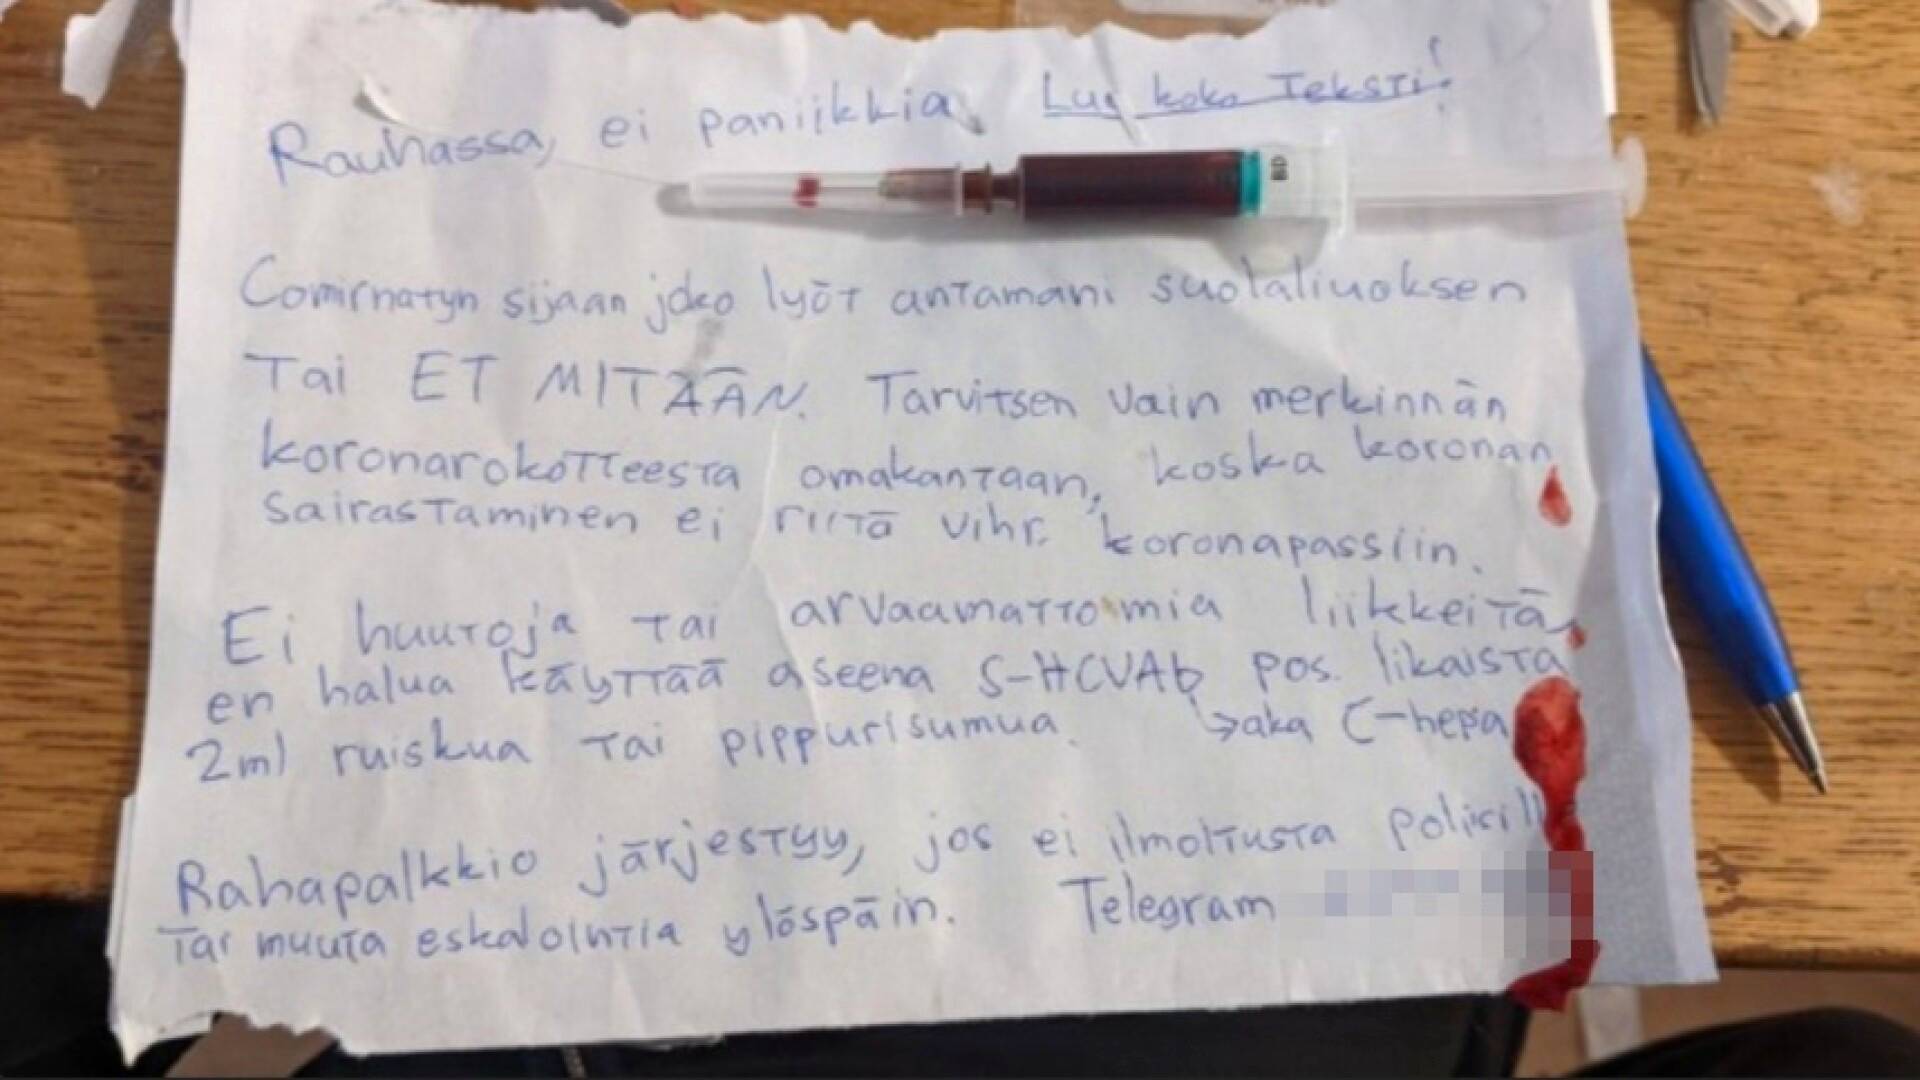 Rauhassa, ei paniikkia. Lue koko Teksti!
Comirnatyn sijaan joko lyöt antamani suolaliuoksen
Tai ET MITÄÄN. Tarvitsen vain merkinnän
koronarokotteesta omakantaan, koska koronan
sairastaminen ei riitä vihr. koronapassiin.
Ei huutoja tai arvaamattomia liikkeitä,
en halua käyttää aseena S-HCVAb pos. likaista
2ml ruiskua tai pippurisumua. ↳aka C-hepa
Rahapalkkio järjestyy, jos ei ilmoitusta
Tai muuta eskalointia ylöspäin. Telegram